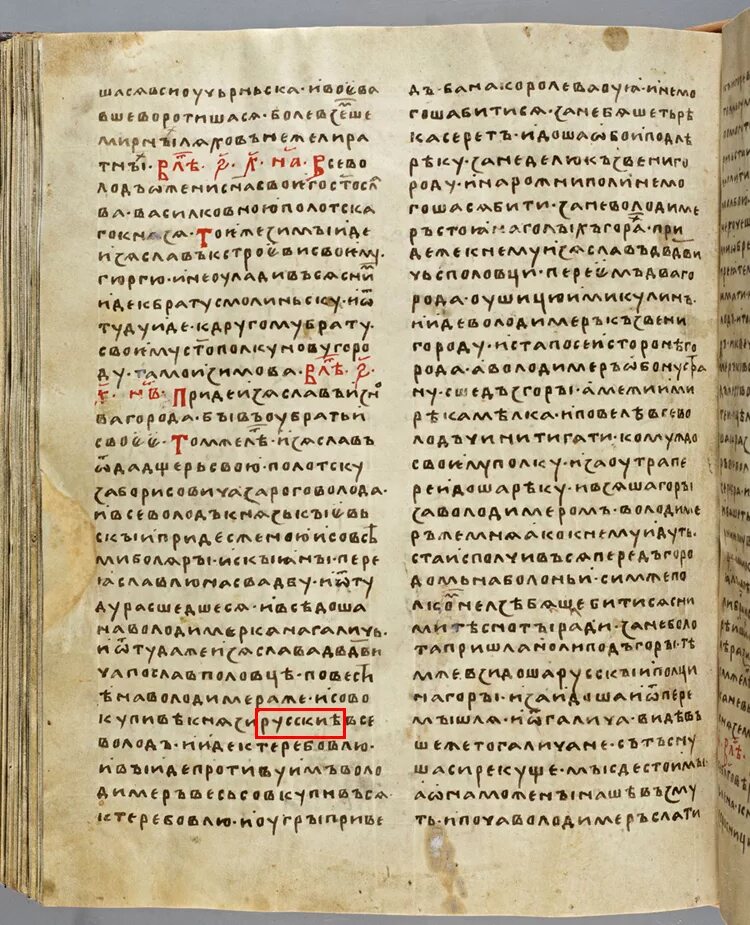 шасѧ всиоучьрньска · ивоева
вшеворотишасѧ · болевсѣше
мирнъıлѧховънежелира
тнъı · В лѣ ·҂ѕ · х · н҃а · Всево
лодъѡжениснасвоиго
ва · василковноюполотска
гокнѧзѧ · Тоижезимъıиде
изѧславъкстроевисвоему ·
гюргю · инеоуладивъсѧсни
идекбратусмолиньску · иѿ
тудуиде · кдругомубрату ·
своимустополкуновугоро
ду · тамоизимова · В лѣ · ҂ѕ ·
х · н҃в · Придеизѧславъизно
вагорода · бъıвъоубратьи
своеѣ · Томжелѣ · изѧславъ
ѿдадщерьсвоюполотску
заборисовичазароговолода ·
ивсеволодъкнѧзькъıевь
скъıипридесженоюисовсѣ
миболѧръı · искиѧнъı · пере
ѧславлюнасвадбу · иѿту
дурасшедшесѧ · ивседоша
наволодимерканагаличь ·
иѿтудажеизѧславадвдви
чапославполовцѣ · повести
ѣнаволодимеражеисово
купивѣкнѧзирусскиѣвъсе
володъ · иидектеребовлю ·
ивъıидепротивуимъволо
димеръвесьсовкупивъсѧ
ктеребовлю · иоугръıприве
дъ · банакоролеваоуıа · инемо
гошабитисѧ · занебѧшетърѣ
касерет · идошаѡбоиподлѣ
рѣку · занеделюкъзвениго
роду · инарожниполинемо
гошасѧбити · заневолодиме
ръстоıанаголъıхъгора · при
дежекнемуизѧславъдвдви
чьсполовци · переемъдваго
рода · оушицюимикулинъ ·
иидеволодимеръкъзвени
городу · истапосеистороньго
рода · аволодимеръѡбонустра
ну · сшедъзгоръı · амежиими
рѣкамѣлка · иповелѣвсево
лодъчинитигати · комуждо
своемуполку · изаоутрапе
реидошарѣку · ивзѧшагоръı
заволодимеромъ · володиме
ръжемнѧакокнемуидуть ·
стаисполчивъсѧпередъгоро
домьнаболоньи · симжепо
лкомнелзѣбѧшебитисѧсни
митѣснотъıради · занеболо
тапришлиполиподъгоръı · тѣ
мжевзидошарусскъıиполци
нагоръı · изаидошаиѿпере
мъıшлѧ · иѿгалича · видѣвъ
шежетогаличане · сътъсну
шасирекуще · мъıсдестоимъı
аѡнаможенъıнашѣвъзму
ть · ипочаволодимеръслати